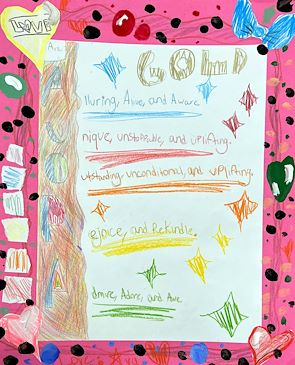 LOVE
GOLD
lluring, Alive, and Aware.
nique, unstoppable, and uplifting.
utstanding, unconditional, and uplifting.
ejoice, and Rekindle.
A dmire, Adore, and Awe